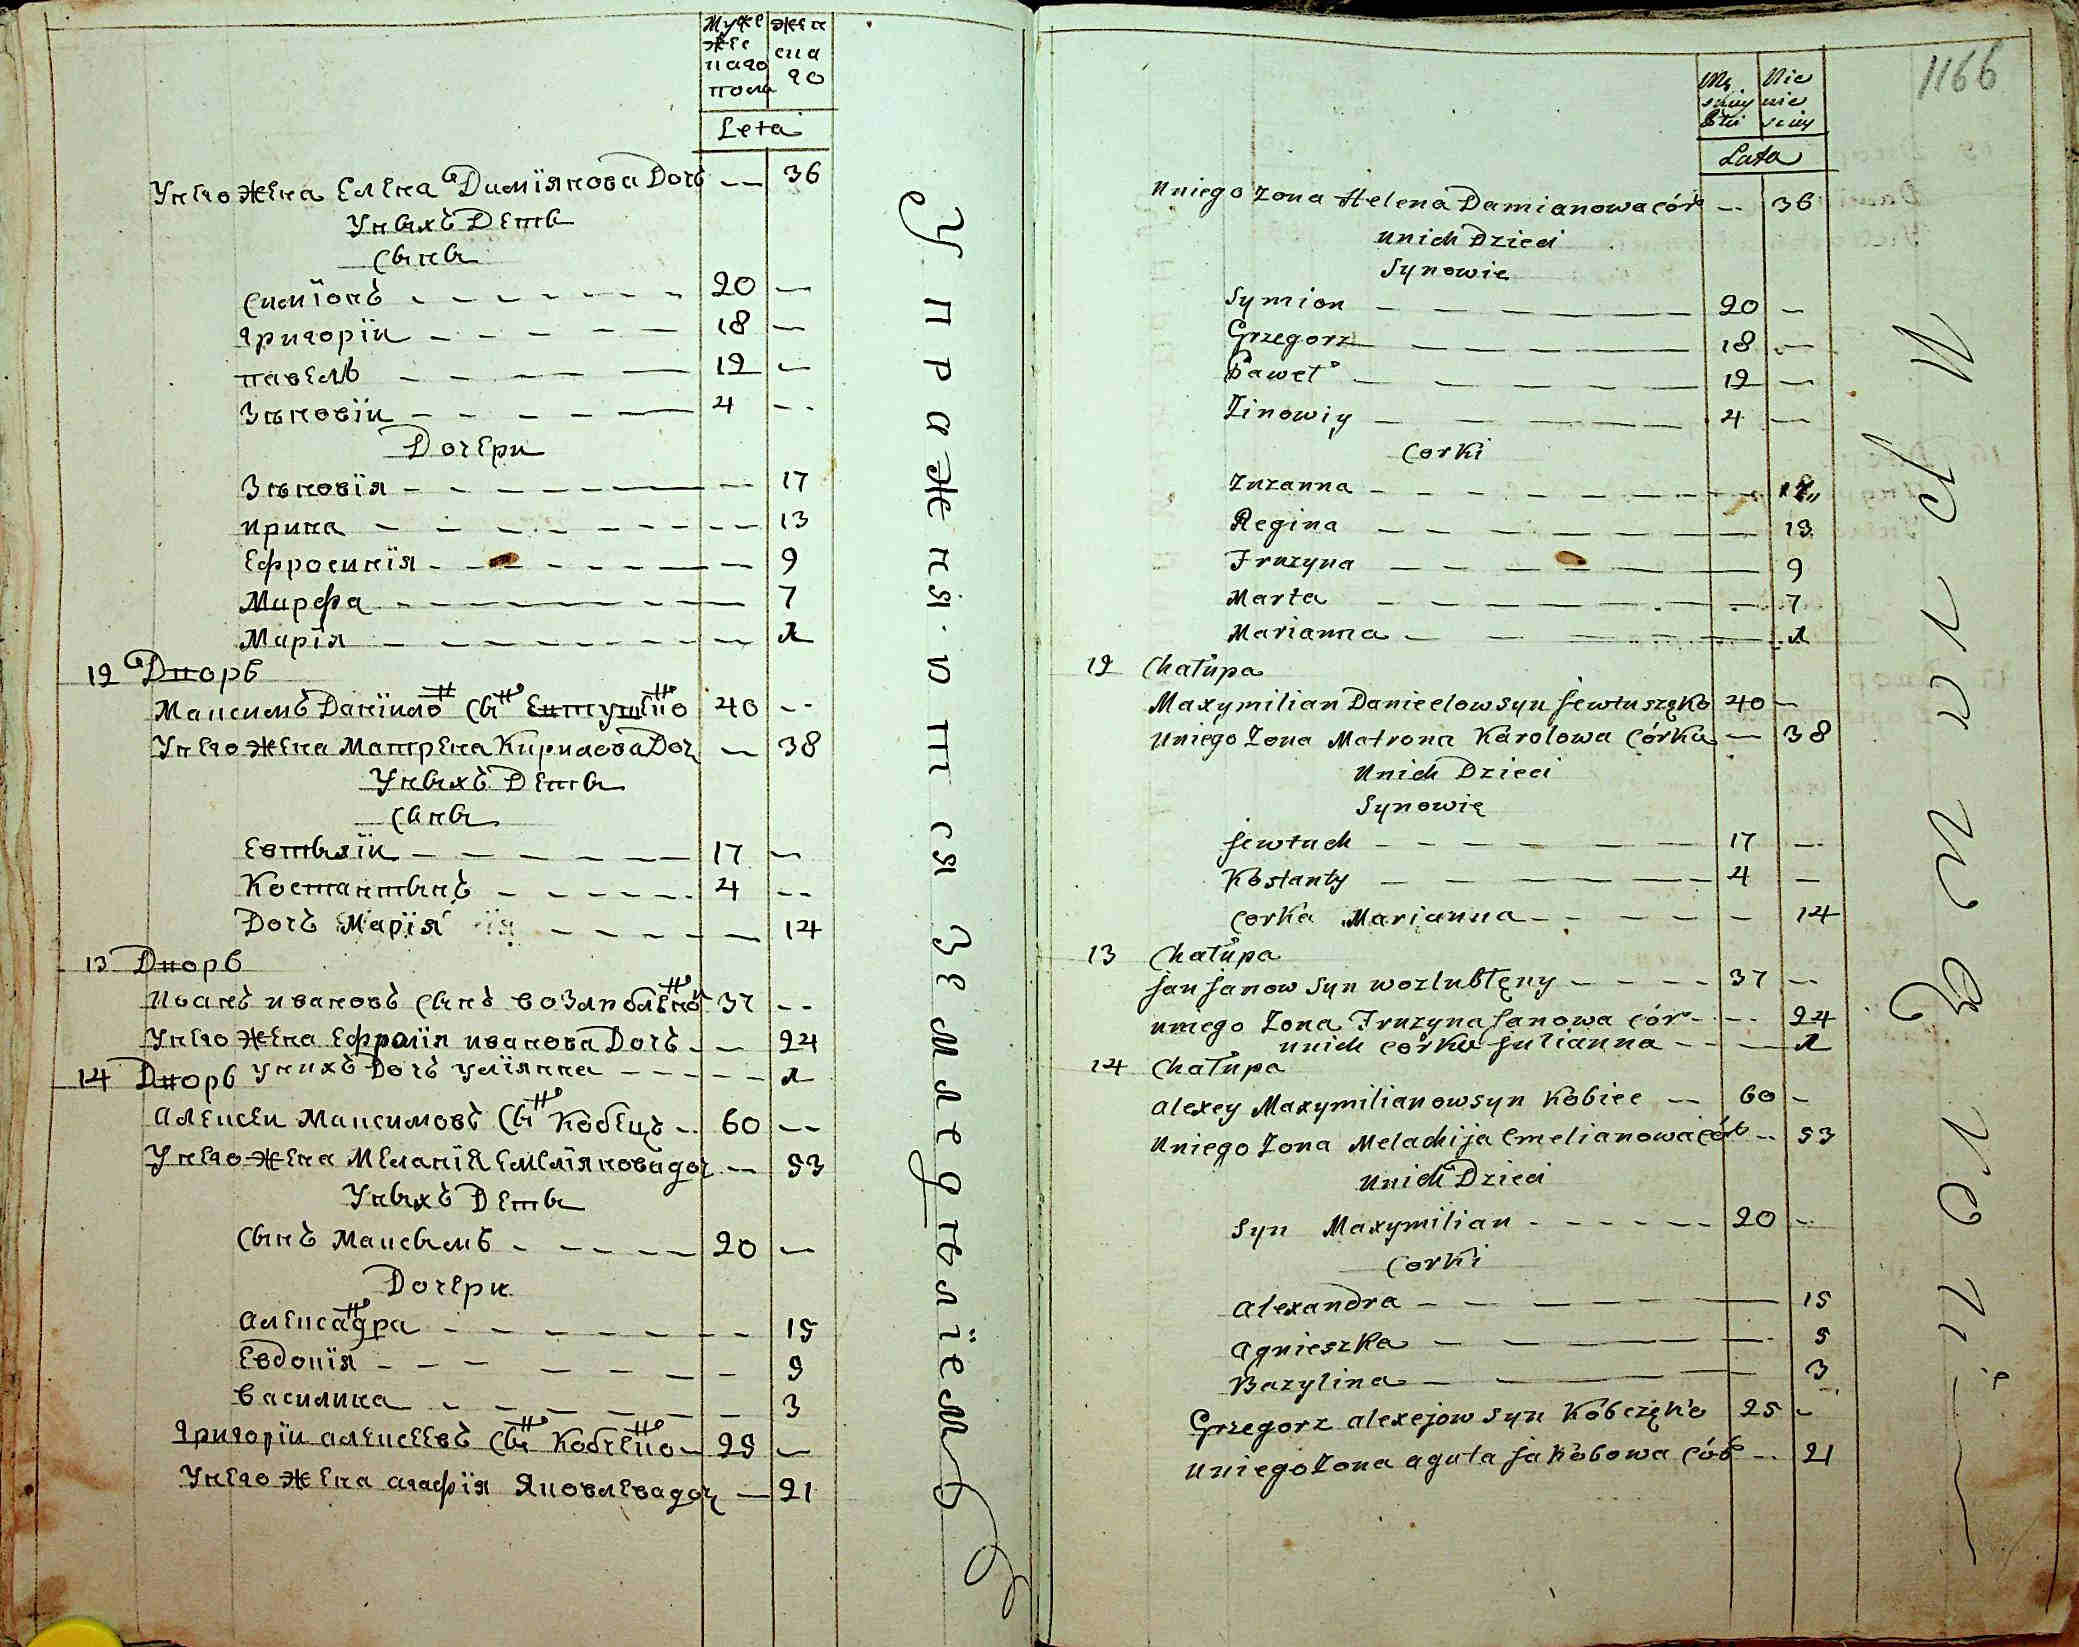 Муже жен
жес ска
каго го
пола
Лета
У него жена Елена Дамїянова Дочь -- 36
У ныхъ Деты
Сыны
Симїонъ 20 --
Григорїи 18 --
павелъ 12 --
Зѣновїи 4 --
Дочери
Зѣновїя 17
ирина 13
Ефросинїя 9
Марфа 7
Марїя 1
12 Дворъ
Максимъ Данїило сын Евтушенко 40 --
У него жена Матрена Кирилова Доч -- 38
У ныхъ Деты
Сыны
Евтыхїи 17 --
Костантынъ 4 --
Дочъ Марїя 14
13 Дворъ
Иванъ ивановъ сынъ возлюбленой 37 --
У него жена Ефросїя иванова Дочъ -- 24
у нихъ Дочъ улїянна 1
14 Дворъ
Алексеи Максимовъ сын Кобецъ 60 --
У него жена Меланїя Емелїянова доч -- 53
У ныхъ Деты
Сынъ Максымъ 20 --
Дочери
Александра 15
Евдокїя 5
Василина 3
Григорїи алексеевъ сын Кобченко 25 --
У него жена агафїя Яковлева доч -- 21
Упражняются земледѣлїемъ
1166
Mę Nie
skiey wie
Płci sciey
Lata
U niego Zona Helena Damianowa cór -- 36
U nich Dzieci
Synowie
Symion 20 --
Grzegorz 18 --
Paweł 12 --
Zinowiy 4 --
Corki
Zuzanna 17
Regina 13
Fruzyna 9
Marta 7
Marianna 1
12 Chałupa
Maxymilian Danielow syn Jewtuszęko 40 --
U niego Zona Matrona Karolowa Córka -- 38
U nich Dzieci
Synowie
Jewtuch 17 --
Kostanty 4 --
Corka Marianna 14
13 Chałupa
Jan Janow Syn wozlublęny 37 --
u niego Zona Fruzyna Janowa cór -- 24
u nich córka Julianna 1
14 Chałupa
Alexey Maxymilianow syn Kobiec 60 --
U niego Zona Melachija Emelianowa cór -- 53
U nich Dzieci
Syn Maxymilian 20 --
Corki
Alexandra 15
Agnieszka 5
Bazylina 3
Grzegorz alexejow Syn Kobczęko 25 --
U niego Zona agata Jakóbowa Cór -- 21